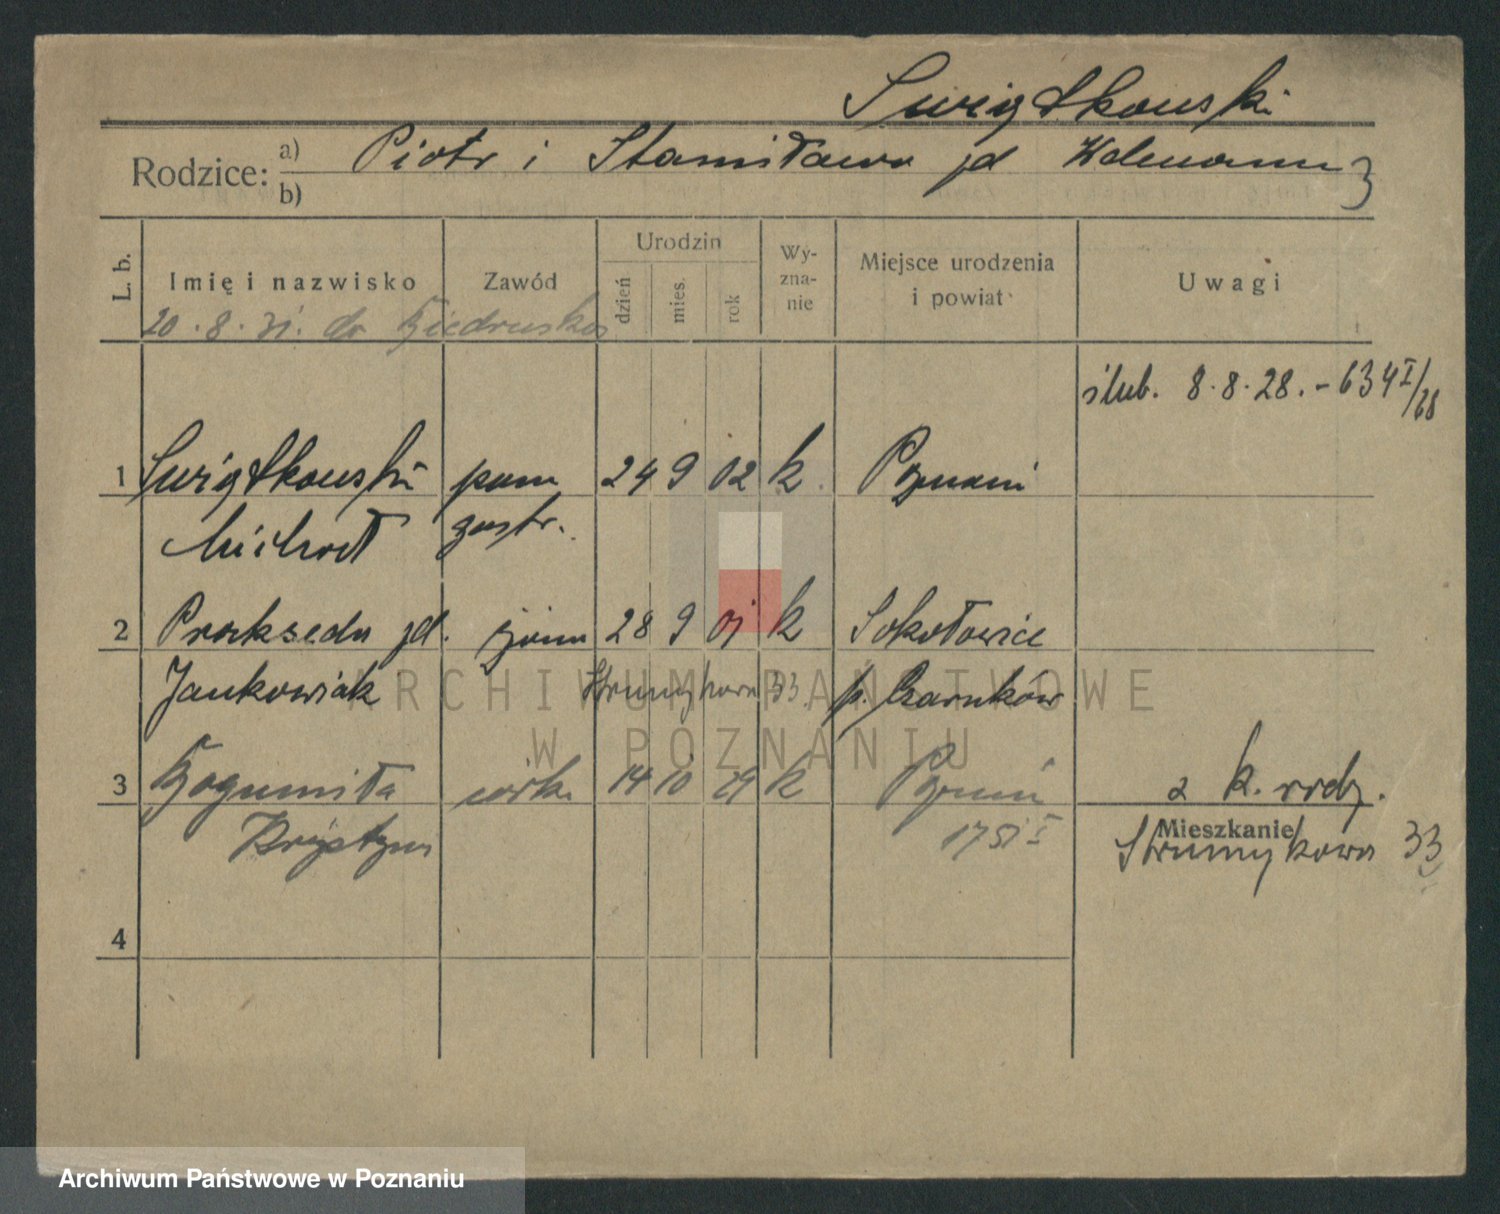 Swiątkowski
Rodzice: a) Piotr i Stanisława jd
b)
L. b. Imię i nazwisko Zawód Urodzin dzień mies. rok Wy-zna-nie Miejsce urodzenia i powiat Uwagi
20.8.31. do Biedruska
ślub. 8.8.28. - 634 I/28
1 Swiątkowski pom 24 9 02 k. Poznań
Michał gastr.
2 Prakseda jd. żona 28 9 01 k Sokołowice
Jankowiak Strumykowa 33. p. Czarnków
3 Bogumiła córka 14 10 29 k Poznań z k. rodz.
Krystyna 1751 I Mieszkanie
Strumykowa 33
4
ARCHIWUM PAŃSTWOWE
W POZNANIU
Archiwum Państwowe w Poznaniu